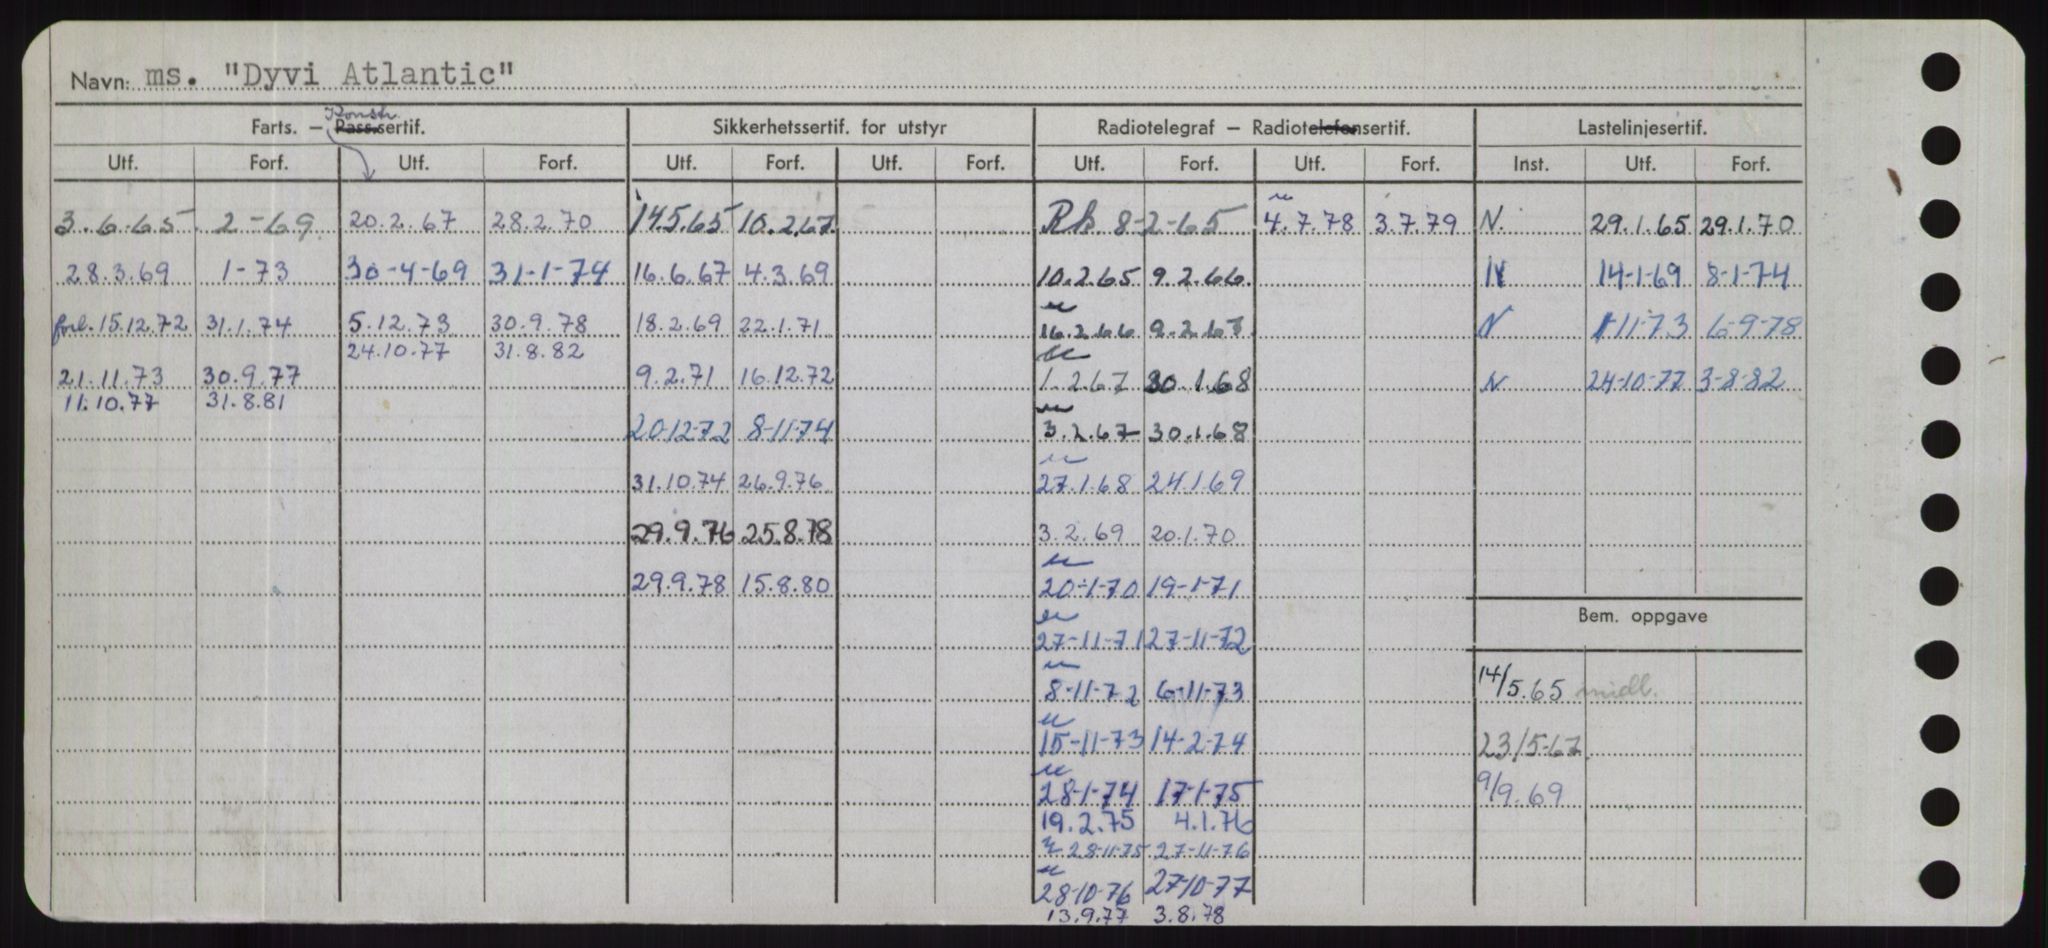 Navn: ms. "Dyvi Atlantic"
Konstr.
Farts. — Pass.sertif. Sikkerhetssertif. for utstyr Radiotelegraf — Radiotelefonsertif. Lastelinjesertif.
Utf. Forf. Utf. Forf. Utf. Forf. Utf. Forf. Utf. Forf. Utf. Forf. Inst. Utf. Forf.
3.6.65 2-69. 20.2.67 28.2.70 14.5.65 10.2.67 Rb 8-2-65 4.7.78 3.7.79 N. 29.1.65 29.1.70
28.3.69 1-73 30-4-69 31-1-74 16.6.67 4.3.69 10.2.65 9.2.66. N 14-1-69 8-1-74
forl. 15.12.72 31.1.74 5.12.73 30.9.78 18.2.69 22.1.71 16.2.66 9.2.67. N 1-11-73 6-9-78
24.10.77 31.8.82
21.11.73 30.9.77 9.2.71 16.12.72 1.2.67 30.1.68 N 24-10-77 3-8-82
11.10.77 31.8.81
20-12-72 8-11-74 3.2.67 30.1.68
31.10.74 26.9.76 27.1.68 24.1.69
29.9.76 25.8.78 3.2.69 20.1.70
29.9.78 15.8.80 20-1-70 19-1-71
Bem. oppgave
27-11-71 27-11-72
8-11-72 6-11-73 14/5.65 midl.
15-11-73 14-2-74 23/5-67
28-1-74 17-1-75 9/9.69
19.2.75 4.1.76
28-11-75 27-11-76
28-10-76 27-10-77
13.9.77 3.8.78